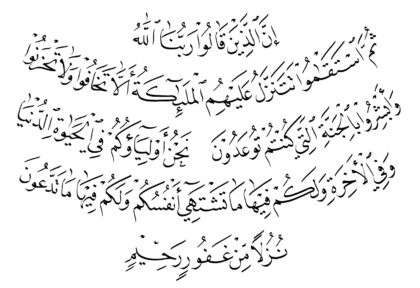 إِنَّ ٱلَّذِينَ قَالُوا۟ رَبُّنَا ٱللَّهُ
ثُمَّ ٱسْتَقَـٰمُوا۟ تَتَنَزَّلُ عَلَيْهِمُ ٱلْمَلَـٰٓئِكَةُ أَلَّا تَخَافُوا۟ وَلَا تَحْزَنُوا۟
وَأَبْشِرُوا۟ بِٱلْجَنَّةِ ٱلَّتِى كُنتُمْ تُوعَدُونَ نَحْنُ أَوْلِيَآؤُكُمْ فِى ٱلْحَيَوٰةِ ٱلدُّنْيَا
وَفِى ٱلْأَخِرَةِ وَلَكُمْ فِيهَا مَا تَشْتَهِىٓ أَنفُسُكُمْ وَلَكُمْ فِيهَا مَا تَدَّعُونَ
نُزُلًا مِّنْ غَفُورٍ رَّحِيمٍ